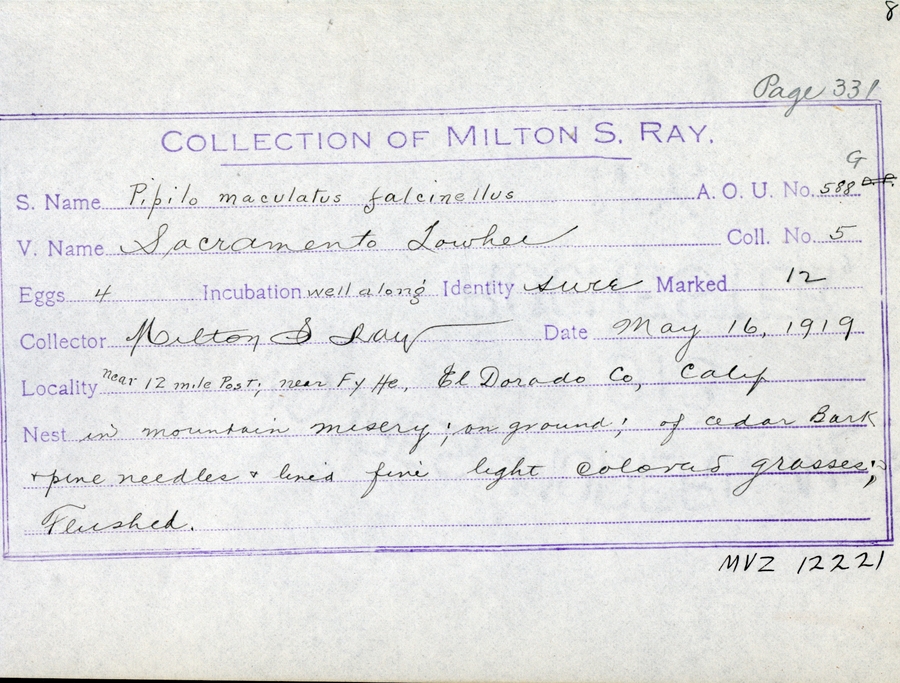 8
Page 331
COLLECTION OF MILTON S. RAY.
G
S. Name Pipilo maculatus falcinellus A. O. U. No. 588
V. Name Sacramento Towhee Coll. No. 5
Eggs 4 Incubation well along Identity sure Marked 12
Collector Milton S Ray Date May 16, 1919
Locality near 12 mile Post, near Fy He., El Dorado Co, Calif
Nest in mountain misery; on ground; of cedar Bark
+ pine needles + lined fine light colored grasses;
Flushed.
MVZ 12221